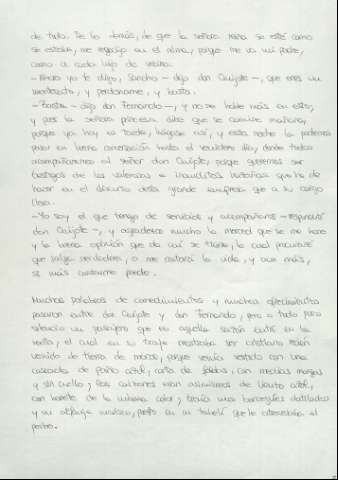 de tuto. De lo demás, de que la señora reina se esté como
se estaba, me regocijo en el alma, porque me va mi parte,
como a cada hijo de vecino.
-Ahora yo te digo, Sancho - dijo don Quijote -, que eres un
mentecato, y perdóname, y basta.
-Basta - dijo don Fernando -, y no se hable más en esto;
y pues la señora princesa dice que se camine mañana,
porque ya hoy es tarde, hágase así, y esta noche la podremos
pasar en buena conversación hasta el venidero día, donde todos
acompañaremos al señor don Quijote, porque queremos ser
testigos de las valerosas e inauditas hazañas que ha de
hacer en el discurso desta grande empresa que a su cargo
lleva.
-Yo soy el que tengo de serviros y acompañaros - respondió
don Quijote -, y agradezco mucho la merced que se me hace
y la buena opinión que de mí se tiene, la cual procuraré
que salga verdadera, o me costará la vida, y aun más,
si más costarme puede.
Muchas palabras de comedimientos y muchos ofrecimientos
pasaron entre don Quijote y don Fernando, pero a todo puso
silencio un pasajero que en aquella sazón entró en la
venta, el cual en su traje mostraba ser cristiano recién
venido de tierra de moros, porque venía vestido con una
casaca de paño azul, corta de faldas, con medias mangas
y sin cuello; los calzones eran asimismo de lienzo azul,
con bonete de la misma color; traía unos borceguíes datilados
y un alfanje morisco, puesto en un tahelí que le atravesaba el
pecho.